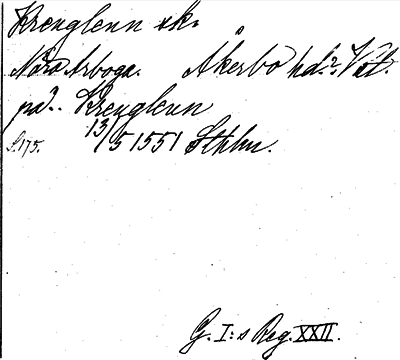 Krenglenn sk.
Nära Arboga. Åkerbo hd. Väst.
på. Krenglenn
S. 175. 13/5 1551 Sthlm.
G. I:s Reg. XXII.